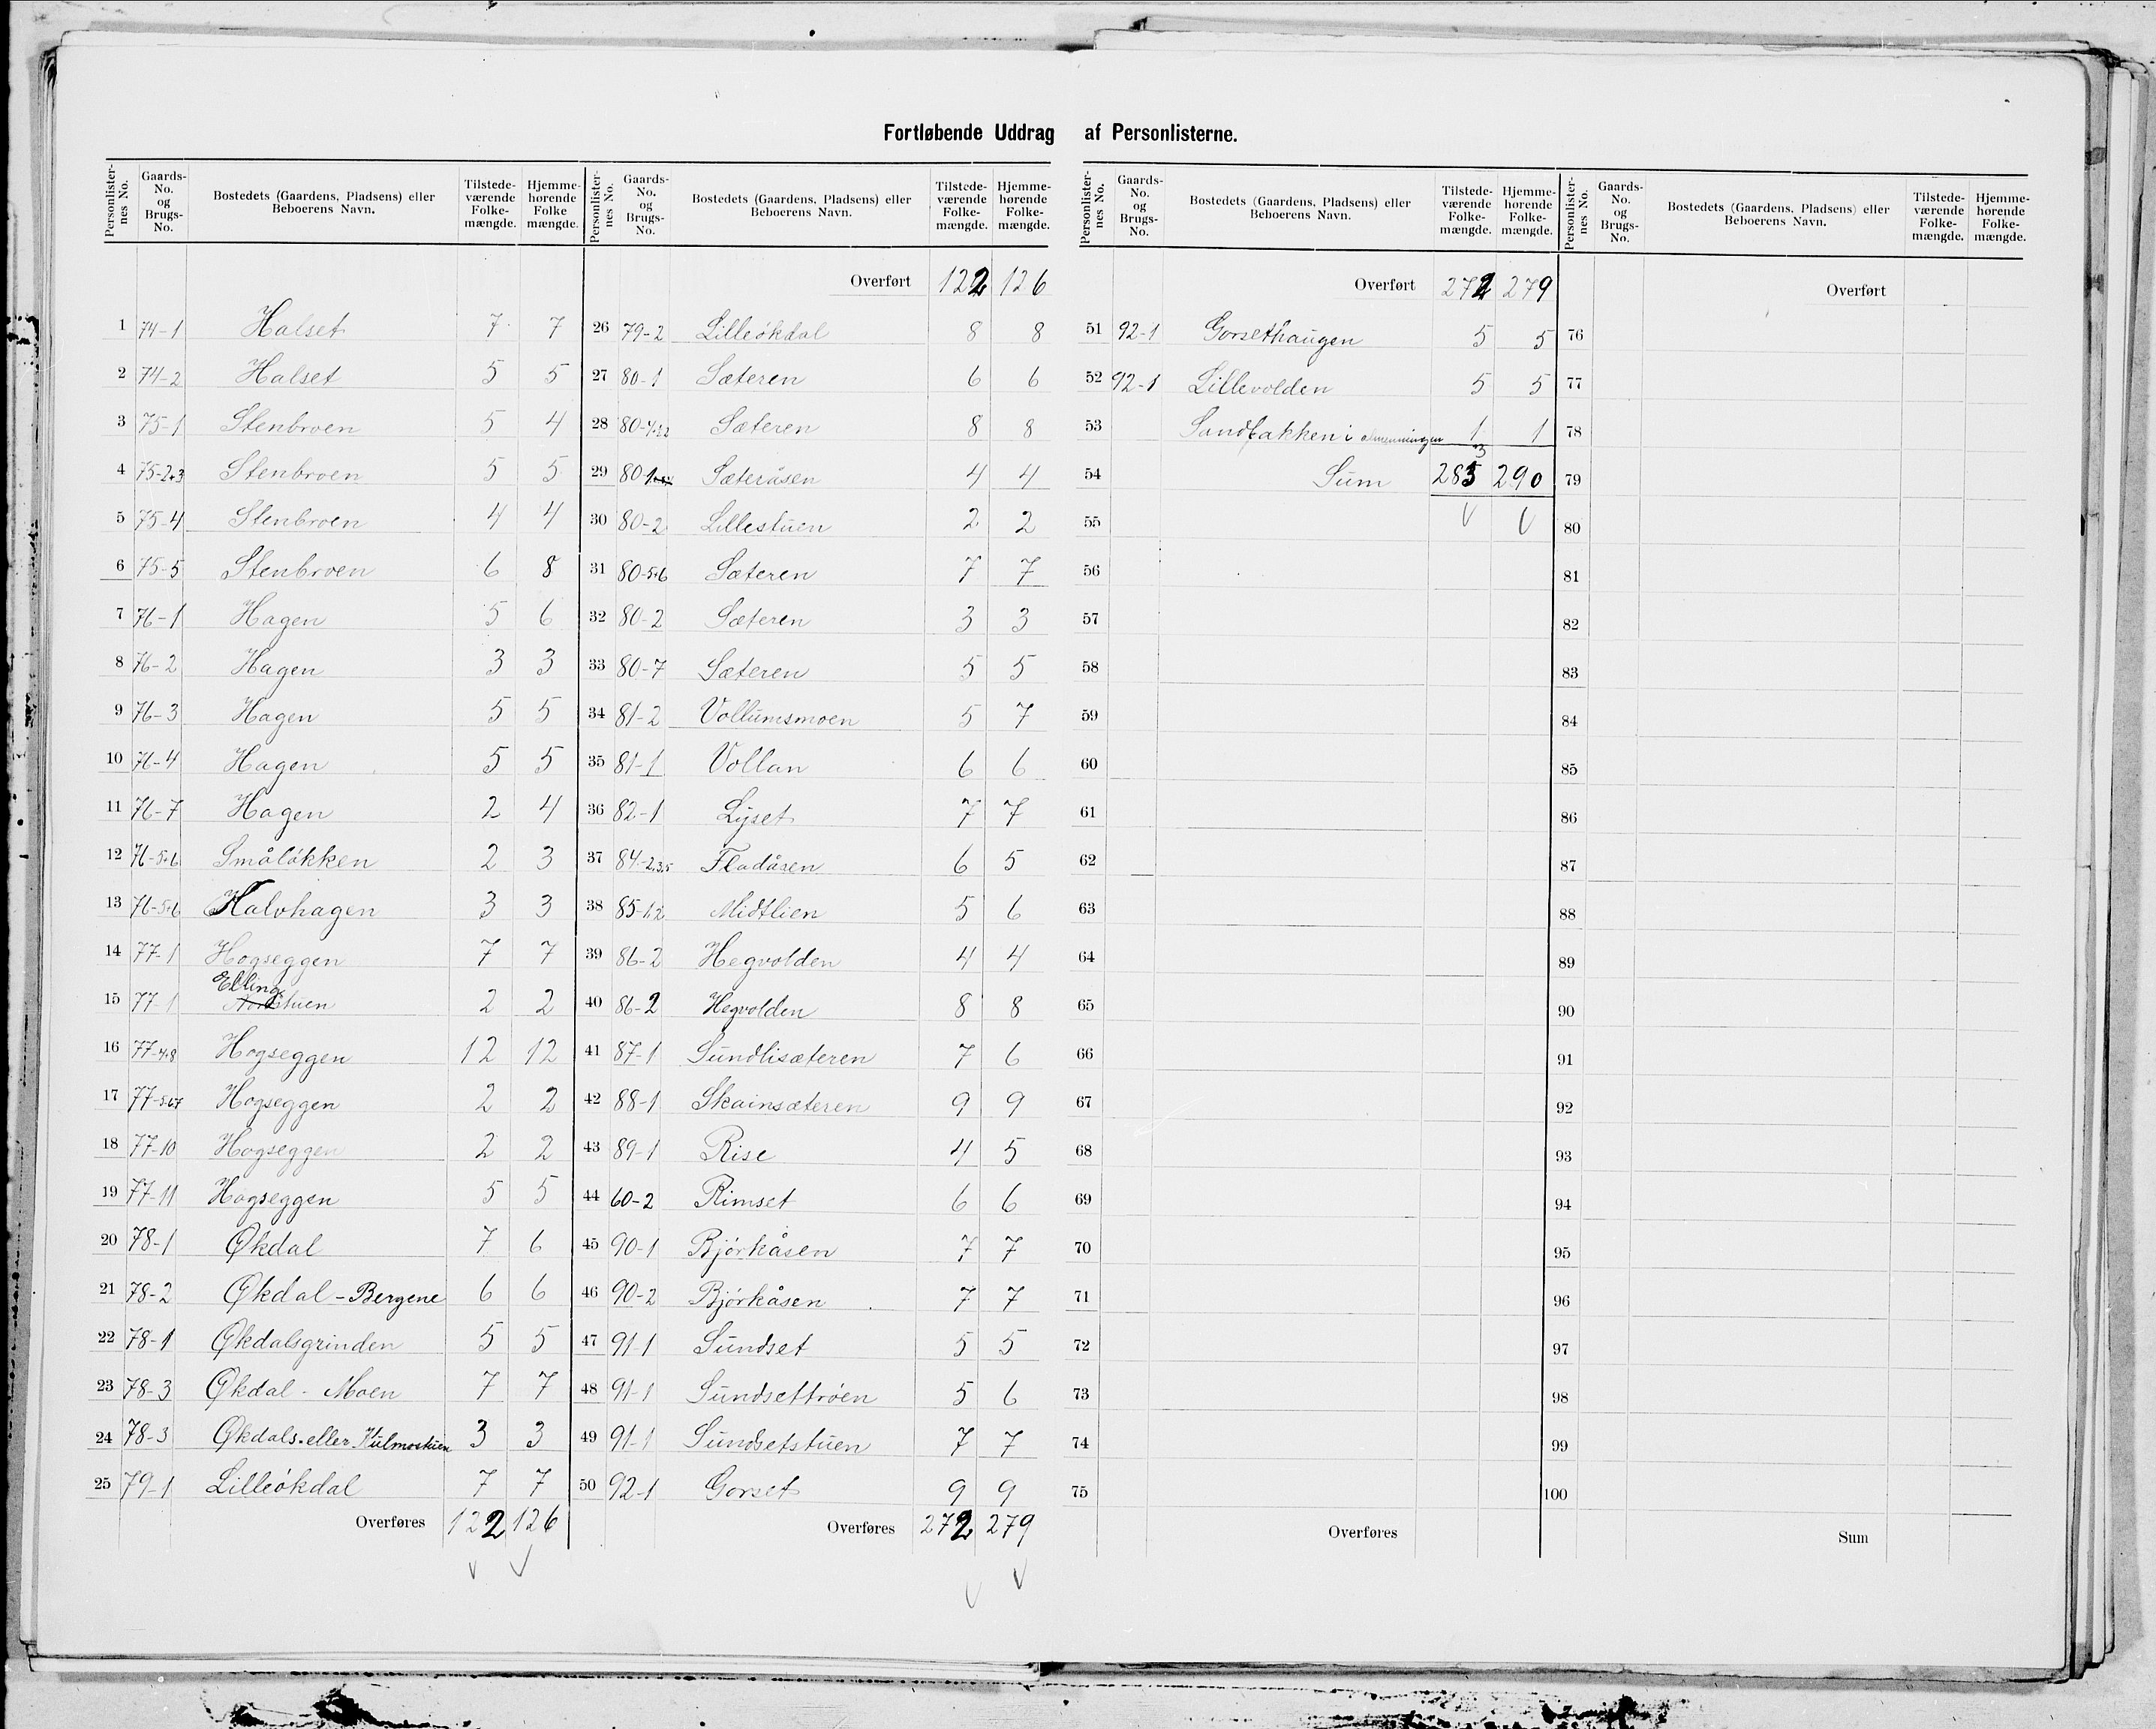 Fortløbende Uddrag af Personlisterne.
Personlister-nes No. Gaards-No. og Brugs-No. Bostedets (Gaardens, Pladsens) eller Beboerens Navn. Tilstede-værende Folke-mængde. Hjemme-hørende Folke mængde.
1 74-1 Halset 7 7
2 74-2 Halset 5 5
3 75-1 Stenbroen 5 4
4 75-2+3 Stenbroen 5 5
5 75-4 Stenbroen 4 4
6 75-5 Stenbroen 6 8
7 76-1 Hagen 5 6
8 76-2 Hagen 3 3
9 76-3 Hagen 5 5
10 76-4 Hagen 5 5
11 76-7 Hagen 2 4
12 76-5+6 Småløkken 2 3
13 76-5+6 Halvhagen 3 3
14 77-1 Hogseggen 7 7
15 77-1 Ellingstuen 2 2
16 77-4+8 Hogseggen 12 12
17 77-5.6.7 Hogseggen 2 2
18 77-10 Hogseggen 2 2
19 77-11 Hogseggen 5 5
20 78-1 Økdal 7 6
21 78-2 Økdal - Bergene 6 6
22 78-1 Økdalsgrinden 5 5
23 78-3 Økdal - Moen 7 7
24 78-3 Økdals. eller Kulmostuen 3 3
25 79-1 Lilleøkdal 7 7
Overføres 122 126
Personlister-nes No. Gaards-No. og Brugs-No. Bostedets (Gaardens, Pladsens) eller Beboerens Navn. Tilstede-værende Folke-mængde. Hjemme-hørende Folke-mængde.
Overført 122 126
26 79-2 Lilleøkdal 8 8
27 80-1 Sæteren 6 6
28 80- Sæteren 8 8
29 80-1 Sæteråsen 4 4
30 80-2 Lillestuen 2 2
31 80-5+6 Sæteren 7 7
32 80-2 Sæteren 3 3
33 80-7 Sæteren 5 5
34 81-2 Vollumsmoen 5 7
35 81-1 Vollan 6 6
36 82-1 Lyset 7 7
37 84-2,3,5 Fladåsen 6 5
38 85-1,2 Midtlien 5 6
39 86-2 Hegvolden 4 4
40 86-2 Hegvolden 8 8
41 87-1 Sundlisæteren 7 6
42 88-1 Skainsæteren 9 9
43 89-1 Rise 4 5
44 60-2 Rimset 6 6
45 90-1 Bjørkåsen 7 7
46 90-2 Bjørkåsen 7 7
47 91-1 Sundset 5 5
48 91-1 Sundsettrøen 5 6
49 91-1 Sundsetstuen 7 7
50 92-1 Gorset 9 9
Overføres 272 279
Personlister-nes No. Gaards-No. og Brugs-No. Bostedets (Gaardens, Pladsens) eller Beboerens Navn. Tilstede-værende Folke-mængde. Hjemme-hørende Folke-mængde.
Overført 272 279
51 92-1 Gorsethaugen 5 5
52 92-1 Lillevolden 5 5
53 Sandbakken i almenningen 1 1
54 Sum 283 290
55
56
57
58
59
60
61
62
63
64
65
66
67
68
69
70
71
72
73
74
75
Overføres
Personlister-nes No. Gaards-No. og Brugs-No. Bostedets (Gaardens, Pladsens) eller Beboerens Navn. Tilstede-værende Folke-mængde. Hjemme-hørende Folke-mængde.
Overført
76
77
78
79
80
81
82
83
84
85
86
87
88
89
90
91
92
93
94
95
96
97
98
99
100
Sum